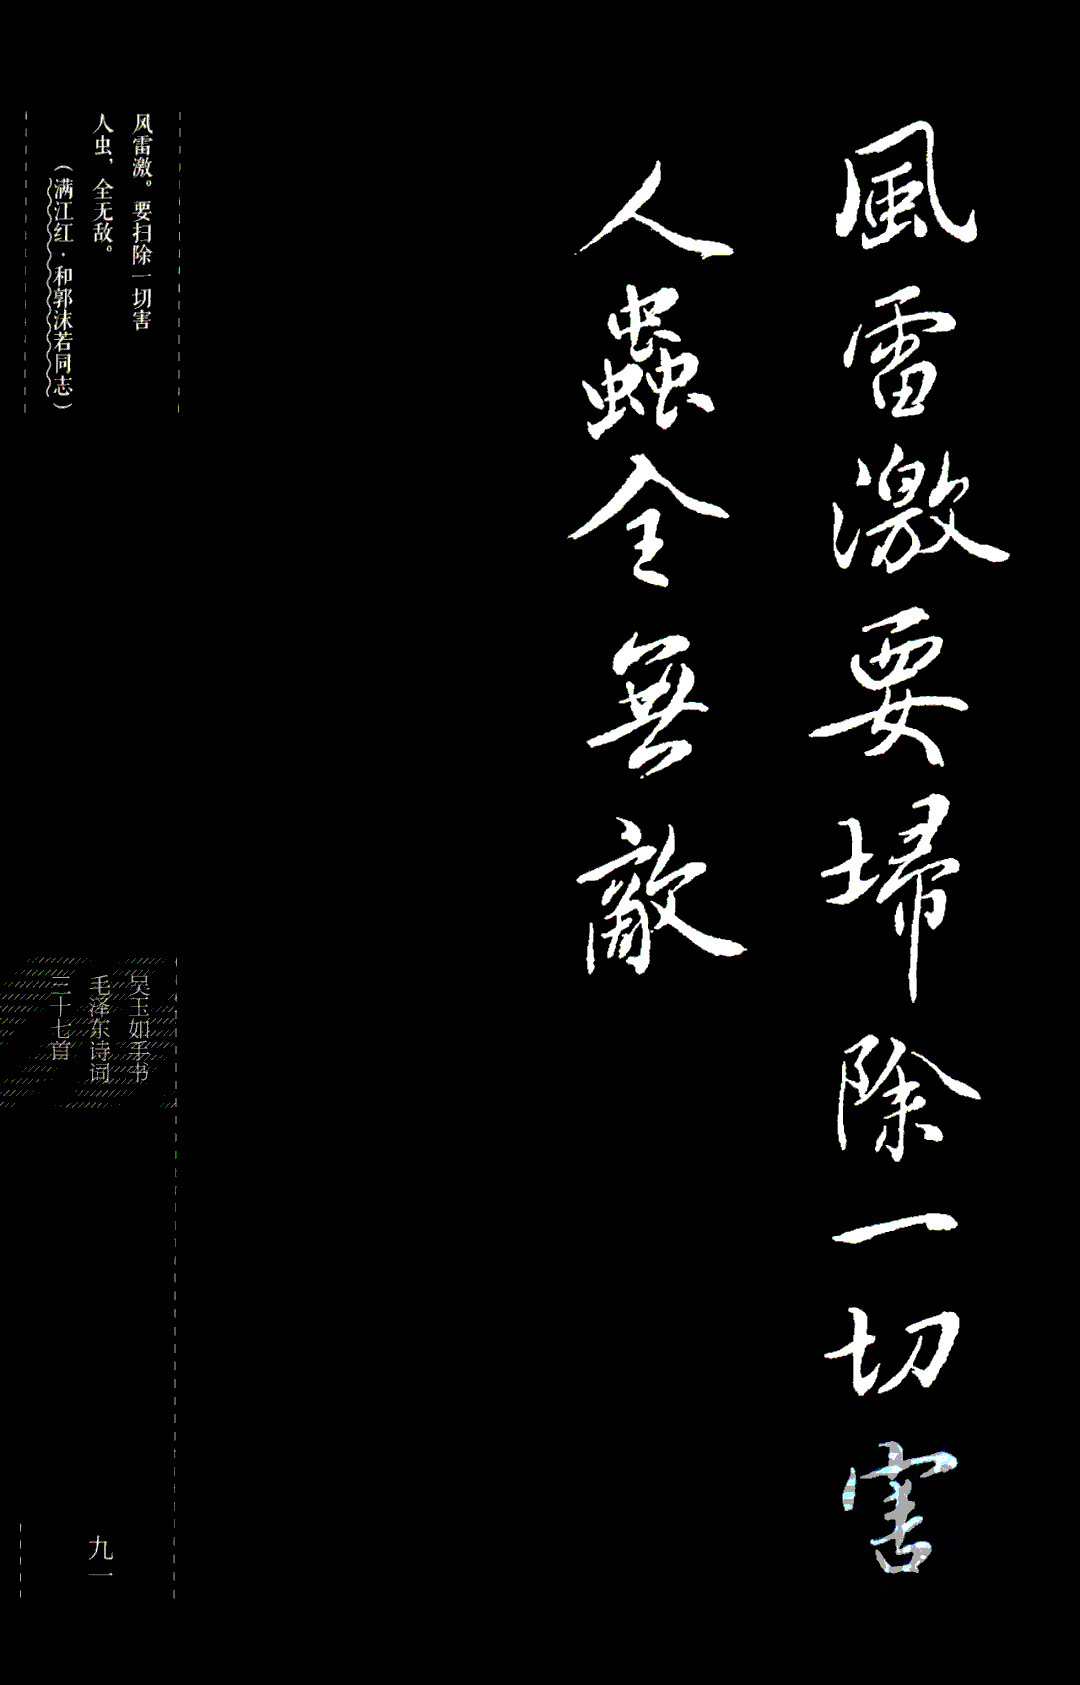 風雷激要埽除一切害
人蟲全無敵
风雷激。要扫除一切害
人虫，全无敌。
（满江红·和郭沫若同志）
吴玉如手书
毛泽东诗词
三十七首
九一